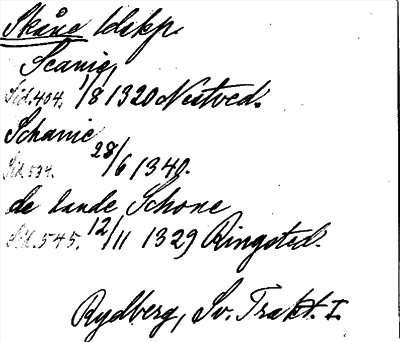 Skåne ldskp.
Scanie,
Sid. 404. 1/8 1320 Nestved.
Schanie
Sid. 534. 28/6 1340.
de lande Schone
Sid. 545. 12/11 1329 Ringsted.
Rydberg, Sv. Trakt. I.